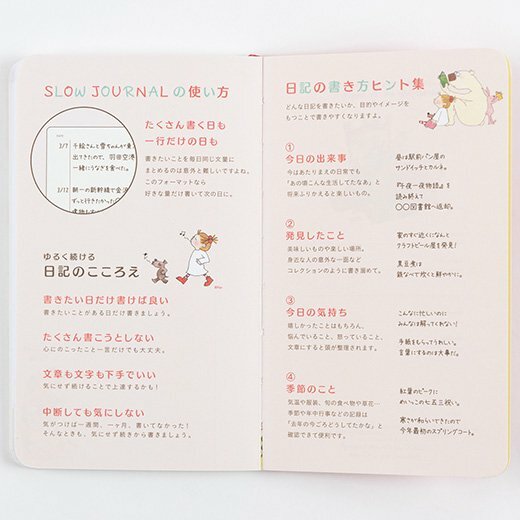 SLOW JOURNALの使い方
DATE
3/7 手絵さんと雪ちゃんが東
出てきたので、羽田空港
一緒にうなぎを食べた。
3/12 朝一の新幹線で金沢
ずっと行きたかった
たくさん書く日も
一行だけの日も
書きたいことを毎日同じ文量に
まとめるのは意外と難しいですよね。
このフォーマットなら
好きな量だけ書いて次の日に。
ゆるく続ける
日記のこころえ
書きたい日だけ書けば良い
書きたいことがある日だけ書きましょう。
たくさん書こうとしない
心にのこったこと一言だけでも大丈夫。
文章も文字も下手でいい
気にせず続けることで上達するかも!
中断しても気にしない
気がつけば一週間、一ヶ月、書いてなかった!
そんなときも、気にせず続きから書きましょう。
日記の書き方ヒント集
どんな日記を書きたいか、目的やイメージを
もつことで書きやすくなりますよ。
①
今日の出来事
今はあたりまえの日常でも
「あの頃こんな生活してたなあ」と
将来ふりかえると楽しいもの。
昼は駅前パン屋の
サンドイッチとカルネ。
『午夜一夜物語』を
読み終えて
〇〇図書館へ返却。
②
発見したこと
美味しいものや楽しい場所。
身近な人の意外な一面など
コレクションのように書き留めて。
家のすぐ近くになんと
クラフトビール屋を発見!
黒豆煮は
鉄なべで炊くと鮮やかに。
③
今日の気持ち
嬉しかったことはもちろん、
悩んでいること、怒っていること、
文章にすると頭が整理されます。
こんなに忙しいのに
みんなは解ってくれない!
手紙をもらってうれしい。
言葉にするのは大事だ。
④
季節のこと
気温や服装、旬の食べ物や草花…
季節や年中行事などの記録は
「去年の今ごろどうしてたかな」と
確認できて便利です。
紅葉のピークに
めいっこの七五三祝。
寒さが和らいできたので
今年最初のスプリングコート。